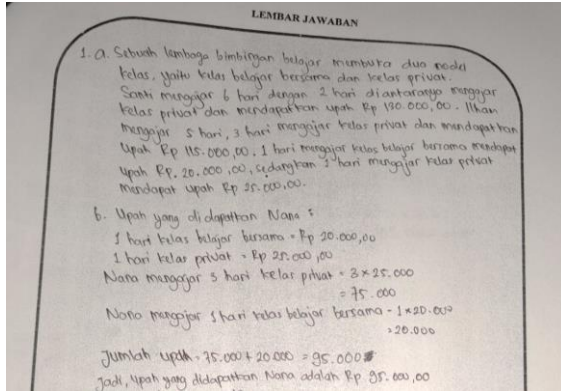 LEMBAR JAWABAN
1. a. Sebuah lembaga bimbingan belajar membuka dua model
kelas, yaitu kelas belajar bersama dan kelas privat.
Santi mengajar 6 hari dengan 2 hari diantaranya mengajar
kelas privat dan mendapatkan upah Rp 130.000,00. Ilham
mengajar 5 hari, 3 hari mengajar kelas privat dan mendapatkan
Upah Rp 115.000,00. 1 hari mengajar kelas belajar bersama mendapat
upah Rp. 20.000,00, sedangkan 1 hari mengajar kelas privat
mendapat upah Rp 25.000,00.
b. Upah yang didapatkan Nana :
1 hari kelas belajar bersama = Rp 20.000,00
1 hari kelas privat = Rp 25.000,00
Nana mengajar 3 hari kelas privat = 3 × 25.000
= 75.000
Nana mengajar 1 hari kelas belajar bersama = 1×20.000
= 20.000
Jumlah upah = 75.000 + 20.000 = 95.000
Jadi, upah yang didapatkan Nana adalah Rp 95.000,00